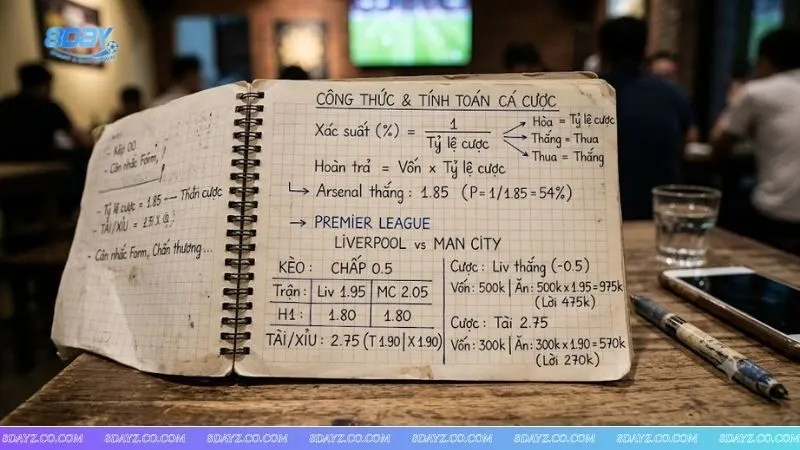 8DAY
- Kèo 00
- Cân nhắc Form,
- Tỷ lệ cược = 1.85 ← Thần cược
- TÀI/XỈU =
- Cân nhắc Form, Chấn thương...
CÔNG THỨC & TÍNH TOÁN CÁ CƯỢC
Xác suất (%) = 1 / Tỷ lệ cược
Hòa = Tỷ lệ cược
Thắng = Thua
Thua = Thắng
Hoàn trả = Vốn x Tỷ lệ cược
↳ Arsenal thắng : 1.85 (P=1/1.85=54%)
→ PREMIER LEAGUE
LIVERPOOL vs MAN CITY
KÈO : CHẤP 0.5
Trận: Liv 1.95 MC 2.05
H1 : 1.80 1.80
TÀI/XỈU : 2.75 (T 1.90 | X 1.90)
Cược : Liv thắng (-0.5)
Vốn: 500k | Ăn: 500k x 1.95 = 975k
(Lời 475k)
Cược : Tài 2.75
Vốn: 300k | Ăn: 300k x 1.90 = 570k
(Lời 270k)
8DAYZ.CO.COM 8DAYZ.CO.COM 8DAYZ.CO.COM 8DAYZ.CO.COM 8DAYZ.CO.COM 8DAYZ.CO.COM 8DAYZ.CO.COM 8DAYZ.CO.COM